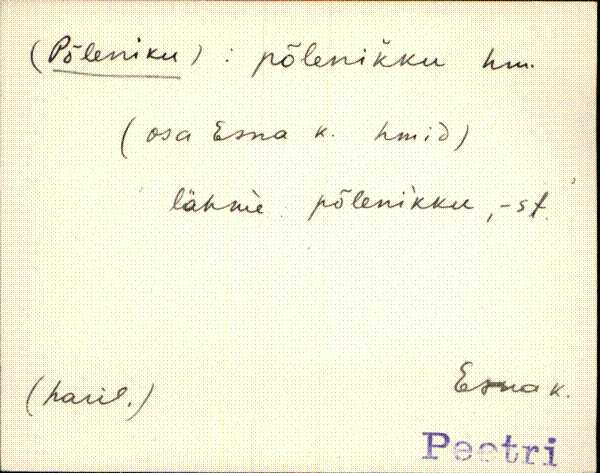 (Põleniku) : põlenikku hm.
(osa Esna k. hmid)
lähme põlenikku, -st.
(haril.)
Esna k.
Peetri